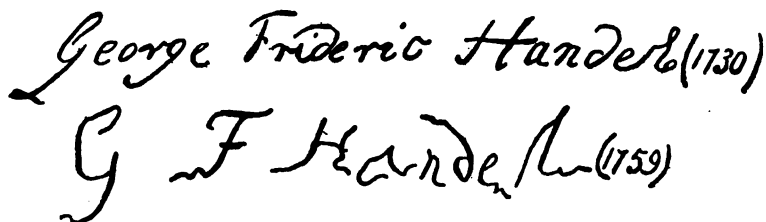 George Frideric Handel (1730)
G F Handel (1759)